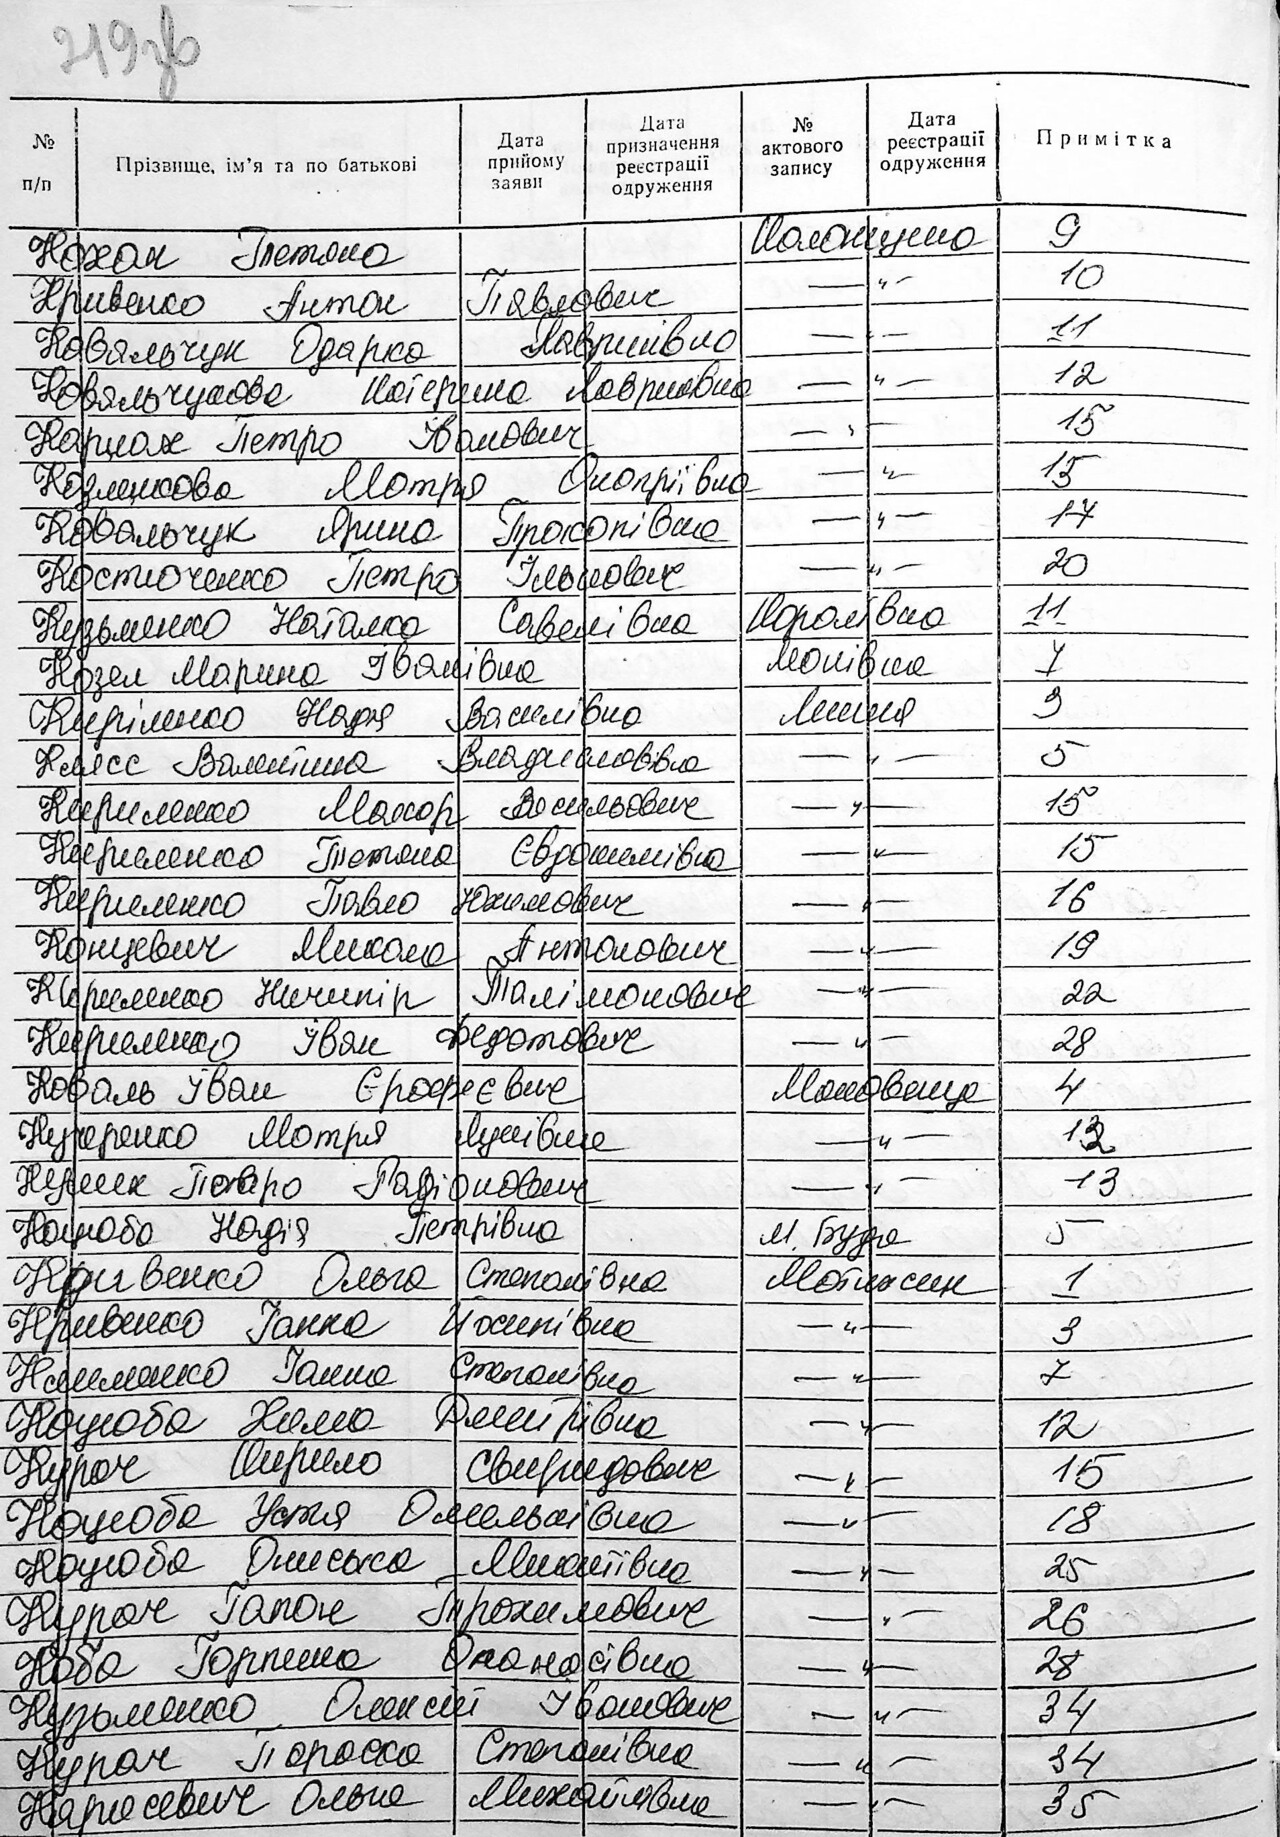 219зв
№ п/п
Прізвище, ім'я та по батькові
Дата прийому заяви
Дата призначення реєстрації одруження
№ актового запису
Дата реєстрації одруження
Примітка
Кохан Тетяна Колонщина 9
Кривенко Антон Павлович — " — 10
Ковальчук Одарка Лавринівна — " — 11
Ковальчукова Катерина Лавринівна — " — 12
Карпюк Петро Іванович — " — 15
Козлицова Мотря Онопріївна — " — 15
Ковальчук Ярина Прокопівна — " — 17
Костюченко Петро Ількович — " — 20
Кузьменко Наталка Савелівна Королівка 11
Козел Марина Іванівна Копівка 7
Киріленко Надя Василівна Липня 3
Клясс Валентина Владиславівна — " — 5
Кириленко Макар Васильович — " — 15
Кириленко Тетяна Євдокимівна — " — 15
Кириленко Павло Юхимович — " — 16
Концевич Микола Антонович — " — 19
Кириленко Ничипір Талімонович — " — 22
Кириленко Іван Федотович — " — 28
Коваль Іван Єрофеєвич Маковище 4
Кучеренко Мотря Луківна — " — 13
Петро Радіонович — " — 13
Коцюба Надія Петрівна М. Буда 5
Кривенко Ольга Степанівна Мотижин 1
Кривенко Ганна Йосипівна — " — 3
Клименко Ганна Степанівна — " — 7
Коцюба Дмитрівна — " — 12
Курач Кирило Свиридович — " — 15
Коцюба Устя Омельківна — " — 18
Коцюба Ониська Микитівна — " — 25
Курач Гапон Трохимович — " — 26
Коба Горпина Опанасівна — " — 28
Кузьменко Олексій Іванович — " — 34
Курач Параска Степанівна — " — 34
Карасевич Ольга Михайлівна — " — 35